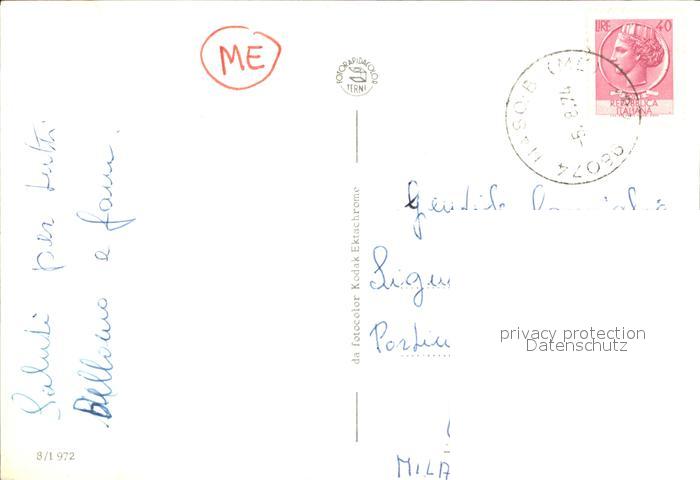 ME
FOTORAPIDACOLOR
TERNI
LIRE 40
REPUBBLICA
ITALIANA
98074 NASO B (ME)
Saluti per tutti
Bellomo e fam.
da fotocolor Kodak Ektachrome
8/1972
Gentile Famiglia
Sign
Portin
MILA
privacy protection
Datenschutz